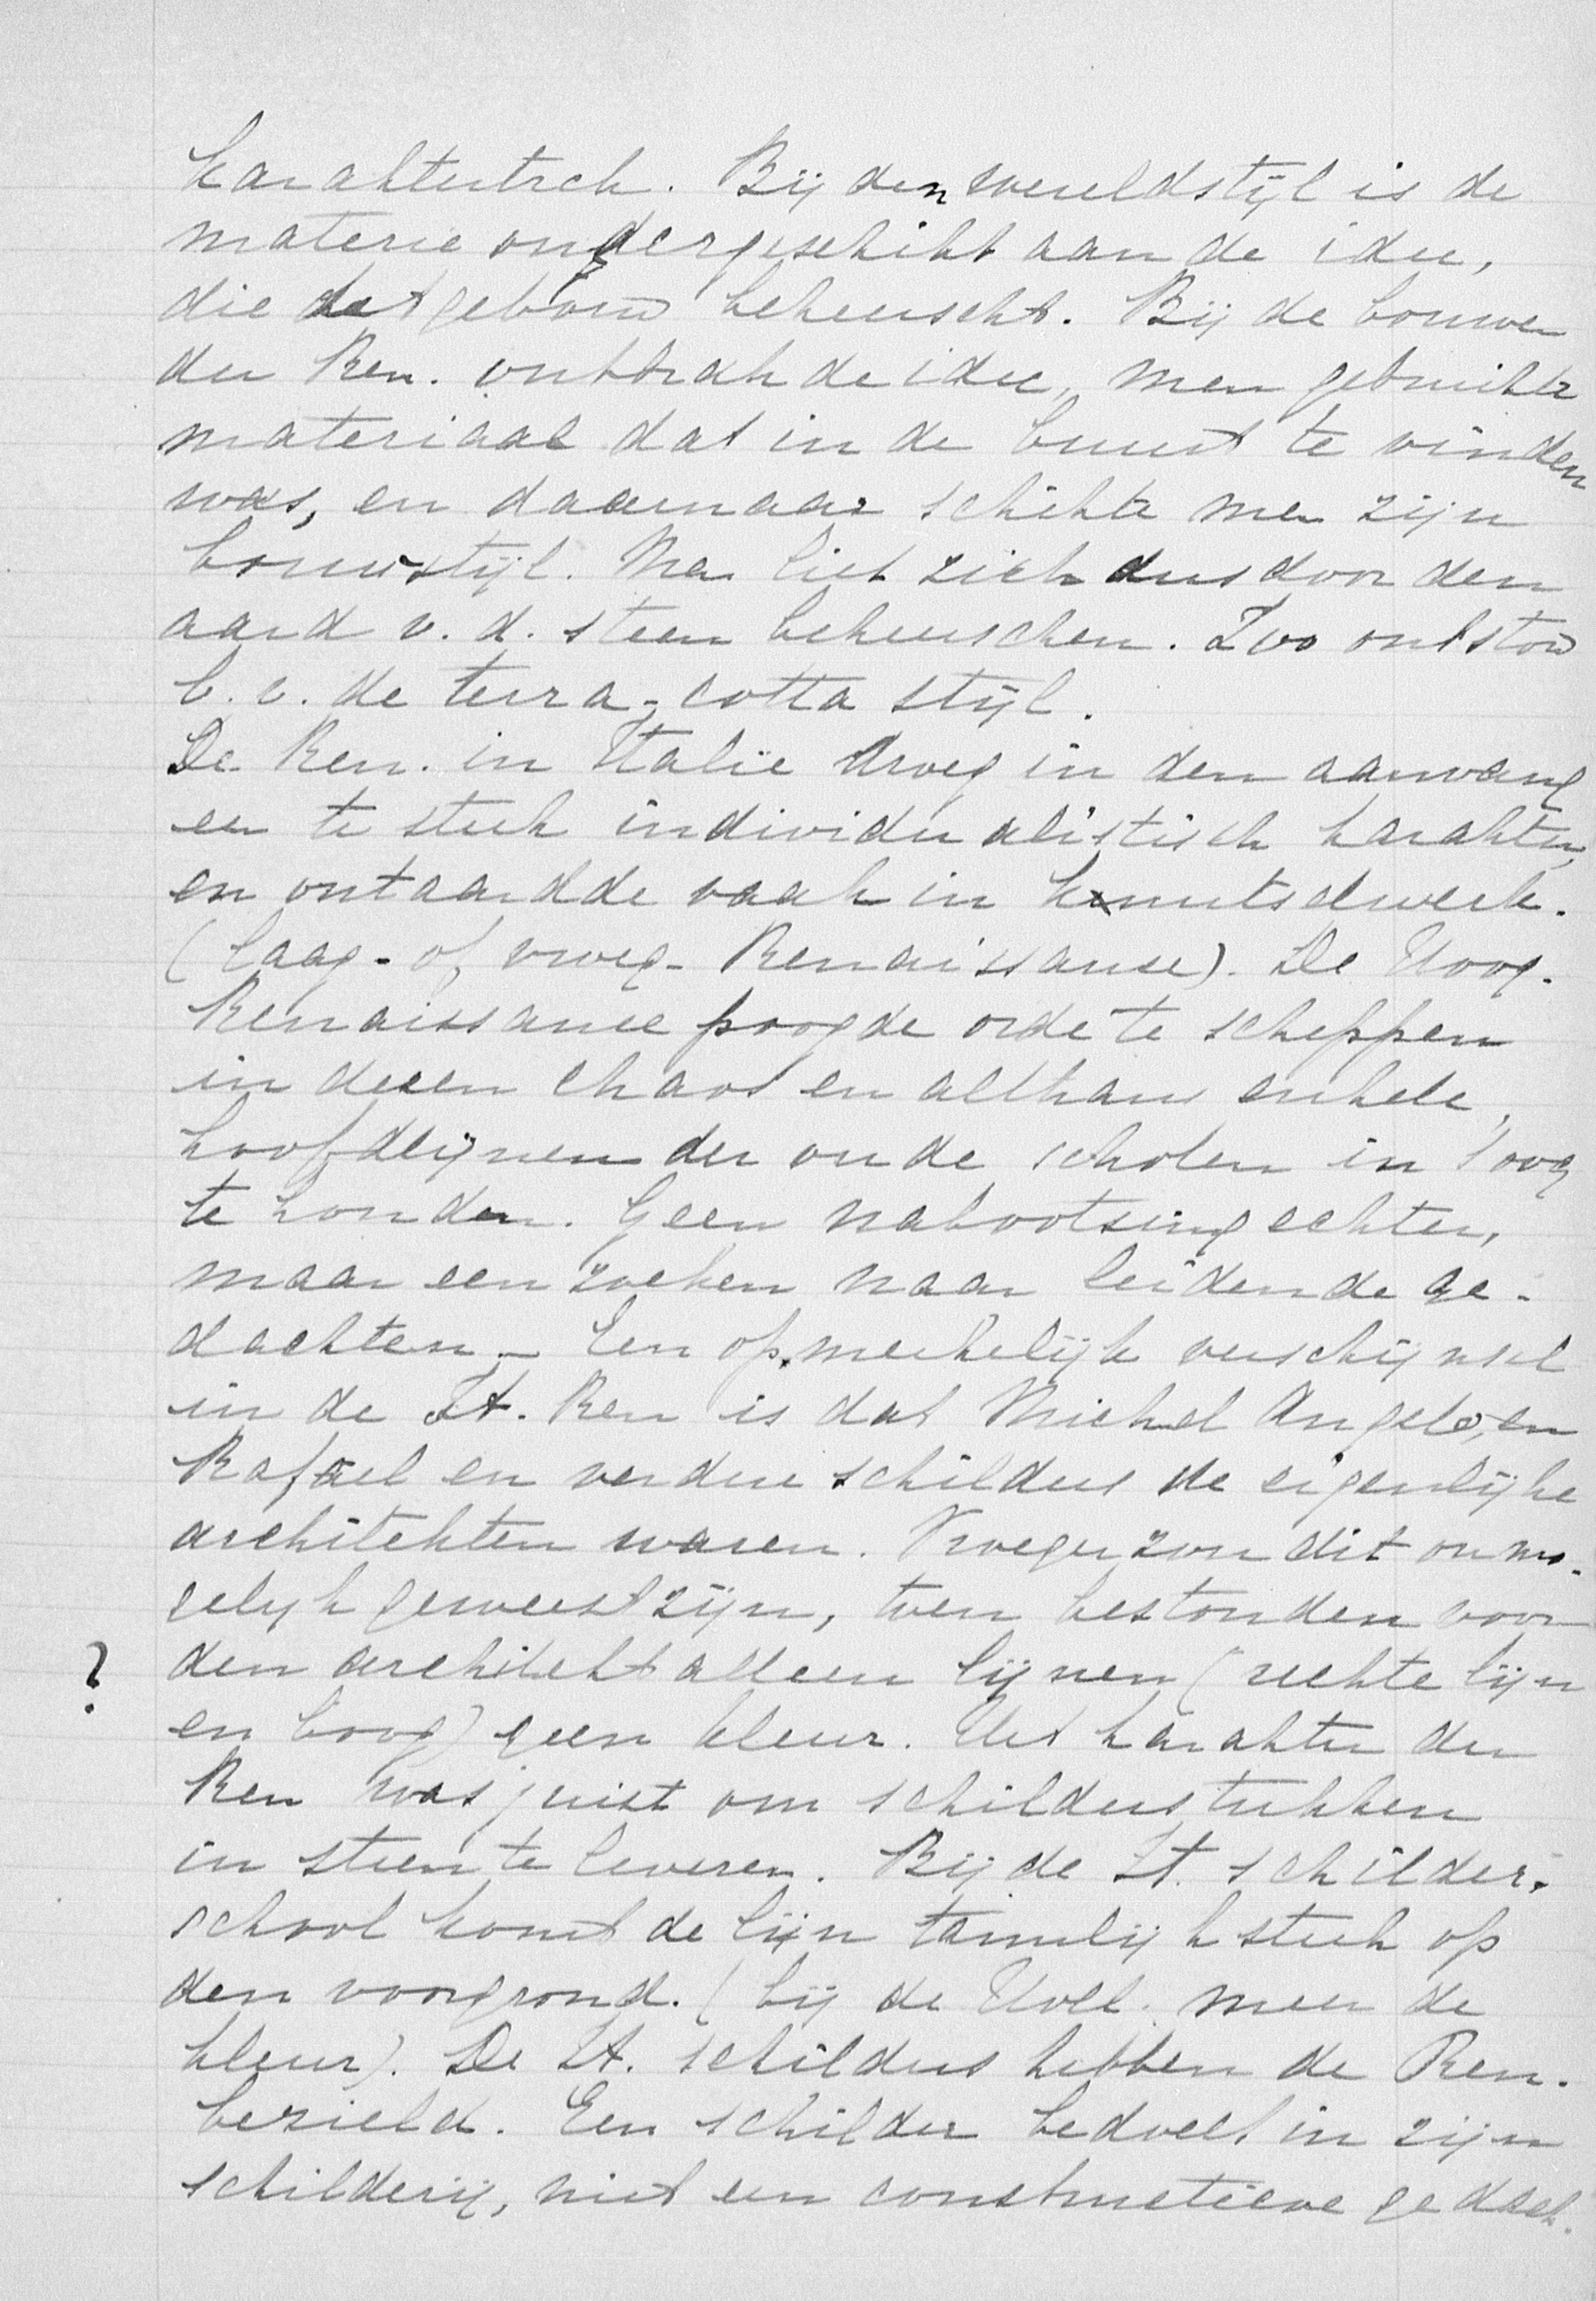 karaktertrek. Bij den wereldstijl is de
materie ondergeschikt aan de idee,
die het gebouw beheerscht. Bij de bouwen
der Ren. ontbrak de idee, men gebruikte
materiaal dat in de buurt te vinden
was, en daarnaar schikte men zijn
bouwstijl. Men liet zich dus door den
aard v. d. steen beheerschen. Zoo ontstond
b. v. de terra-cotta stijl.
De Ren. in Italië droeg in den aanvang
een te sterk individualistisch karakter,
en ontaardde vaak in knutselwerk.
(Laag- of vroeg- Renaissance). De Hoog-
Renaissance poogde orde te scheppen
in dezen chaos en althans enkele
hoofdlijnen der oude scholen in 't oog
te houden. Geen nabootsing echter,
maar een zoeken naar leidende ge-
dachten. - Een opmerkelijk verschijnsel
in de It. Ren is dat Michel Angelo, en
Rafael en verdere schilders de eigenlijke
architekten waren. Vroeger zou dit onmo-
gelijk geweest zijn, toen bestonden voor
? den architekt alleen lijnen (rechte lijn
en boog) geen kleur. Het karakter der
Ren was juist om schilderstukken
in steen te leveren. Bij de It. schilder-
school komt de lijn tamelijk sterk op
den voorgrond. (bij de Holl. meer de
kleur). De It. schilders hebben de Ren.
bezield. Een schilder bedoelt in zijn
schilderij, niet een constructieve gedach-